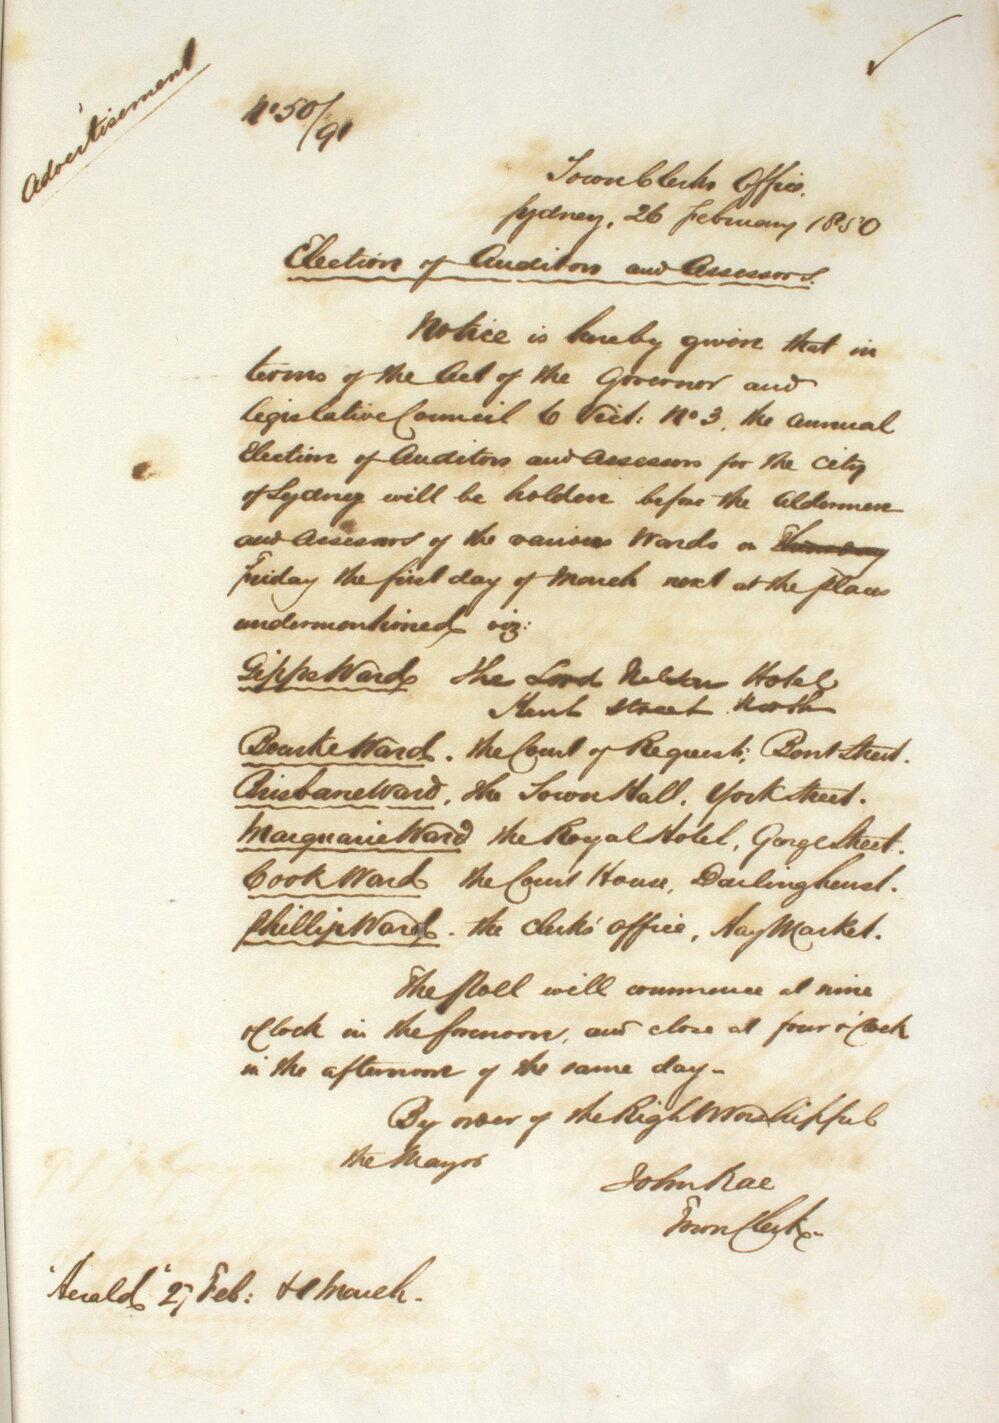 Advertisement
No 50/91
Town Clerks Office.
Sydney, 26 February 1850
Election of Auditors and Assessors.
Notice is hereby given that in
terms of the Act of the Governor and
Legislative Council 6 Vict: No 3, the annual
Election of Auditors and Assessors for the City
of Sydney will be holden before the Aldermen
and Assessors of the various Wards on Thursday
Friday the first day of March next at the places
undermentioned viz:
Gipps Ward The Lord Nelson Hotel
Kent Street North
Bourke Ward. the Court of Requests, Bent Street.
Brisbane Ward, the Town Hall, York Street.
Macquarie Ward the Royal Hotel, George Street.
Cook Ward the Court House, Darlinghurst.
Phillip Ward. the Clerks' Office, Hay Market.
The Poll will commence at nine
o'Clock in the forenoon, and close at four o'Clock
in the afternoon of the same day-
By order of the Right Worshipful
the Mayor
John Rae
Town Clerk-
"Herald" 27 Feb: & 1 March.